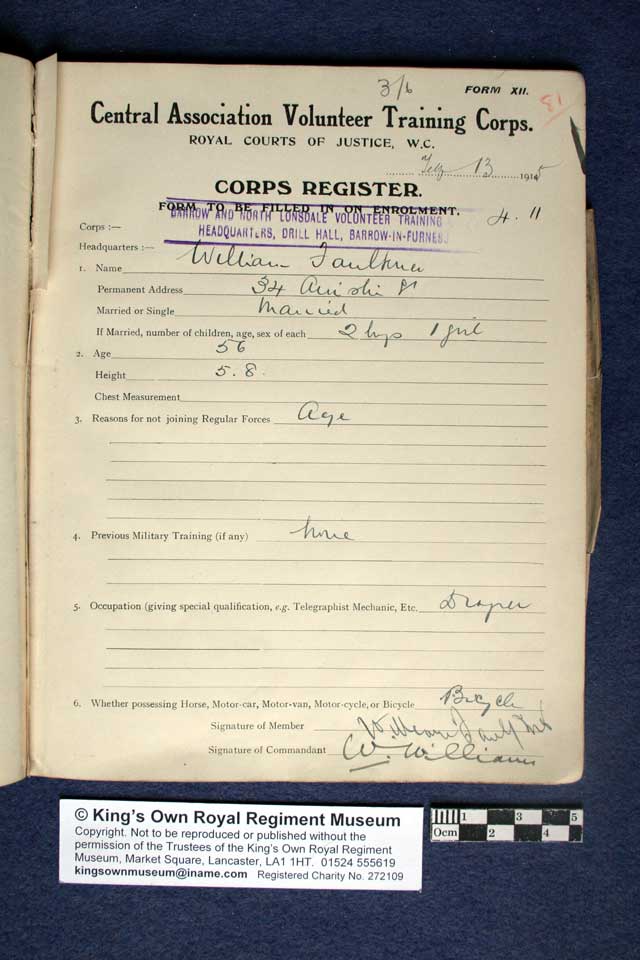 3/6 FORM XII. 31
Central Association Volunteer Training Corps.
ROYAL COURTS OF JUSTICE, W.C.
Feby 13 1915
CORPS REGISTER.
FORM TO BE FILLED IN ON ENROLMENT. 4. 11
BARROW AND NORTH LONSDALE VOLUNTEER TRAINING
Corps :—
HEADQUARTERS, DRILL HALL, BARROW-IN-FURNESS
Headquarters :—
1. Name William Faulkner
Permanent Address 34 St
Married or Single Married
If Married, number of children, age, sex of each 2 boys 1 girl
2. Age 56
Height 5. 8.
Chest Measurement
3. Reasons for not joining Regular Forces Age
4. Previous Military Training (if any) none
5. Occupation (giving special qualification, e.g. Telegraphist Mechanic, Etc. Draper
6. Whether possessing Horse, Motor-car, Motor-van, Motor-cycle, or Bicycle Bicycle
Signature of Member William Faulkner
Signature of Commandant W. Williams
© King's Own Royal Regiment Museum
Copyright. Not to be reproduced or published without the
permission of the Trustees of the King's Own Royal Regiment
Museum, Market Square, Lancaster, LA1 1HT. 01524 555619
kingsownmuseum@iname.com Registered Charity No. 272109
1 3 5
0cm 2 4